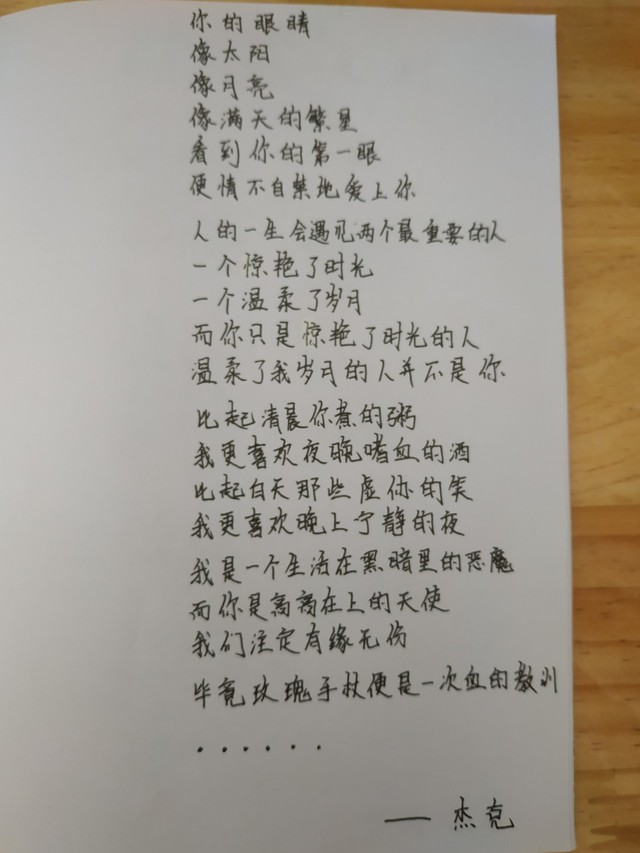 你的眼睛
像太阳
像月亮
像满天的繁星
看到你的第一眼
便情不自禁地爱上你
人的一生会遇见两个最重要的人
一个惊艳了时光
一个温柔了岁月
而你只是惊艳了时光的人
温柔了我岁月的人并不是你
比起清晨你煮的粥
我更喜欢夜晚嗜血的酒
比起白天那些虚伪的笑
我更喜欢晚上宁静的夜
我是一个生活在黑暗里的恶魔
而你是高高在上的天使
我们注定有缘无伤
毕竟玫瑰手杖便是一次血的教训
......
——杰克